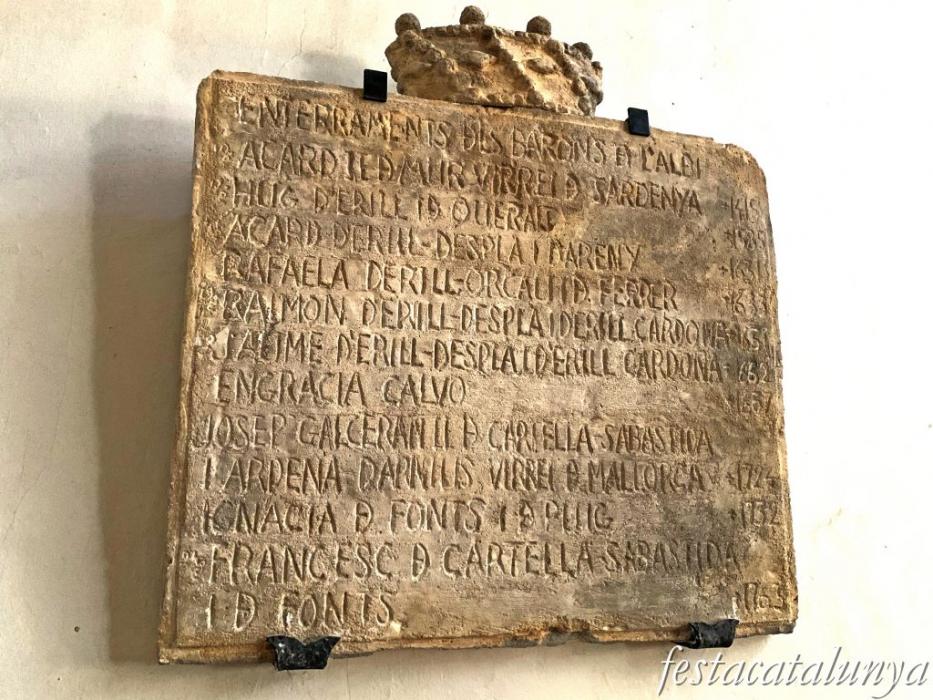 ENTERRAMENTS DLS BARONS Đ L'ALBI
ACARD I E Đ MUR VIRREI Đ SARDENYA +1415
HUG D'ERILL I Đ QUERALT
ACARD D'ERILL-DESPLA I MARENY +1631
RAFAELA DERILL-ORCAU I D. FERRER +1633
RAIMON D'ERILL-DESPLA I DERILL CARDONA
JAUME D'ERILL-DESPLA I D'ERILL CARDONA
ENGRACIA CALVO
JOSEP GALCERAN II Đ CARTELLA-SABASTIDA
I ARDENA DARNILIS, VIRREI Đ MALLORCA +1724
IGNACIA Đ FONTS I Đ PUIG +1732
FRANCESC Đ CARTELLA-SABASTIDA
I Đ FONTS +1763
festacatalunya